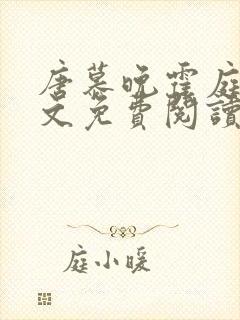 唐慕晚霍庭
文免費閱讀
庭小暖